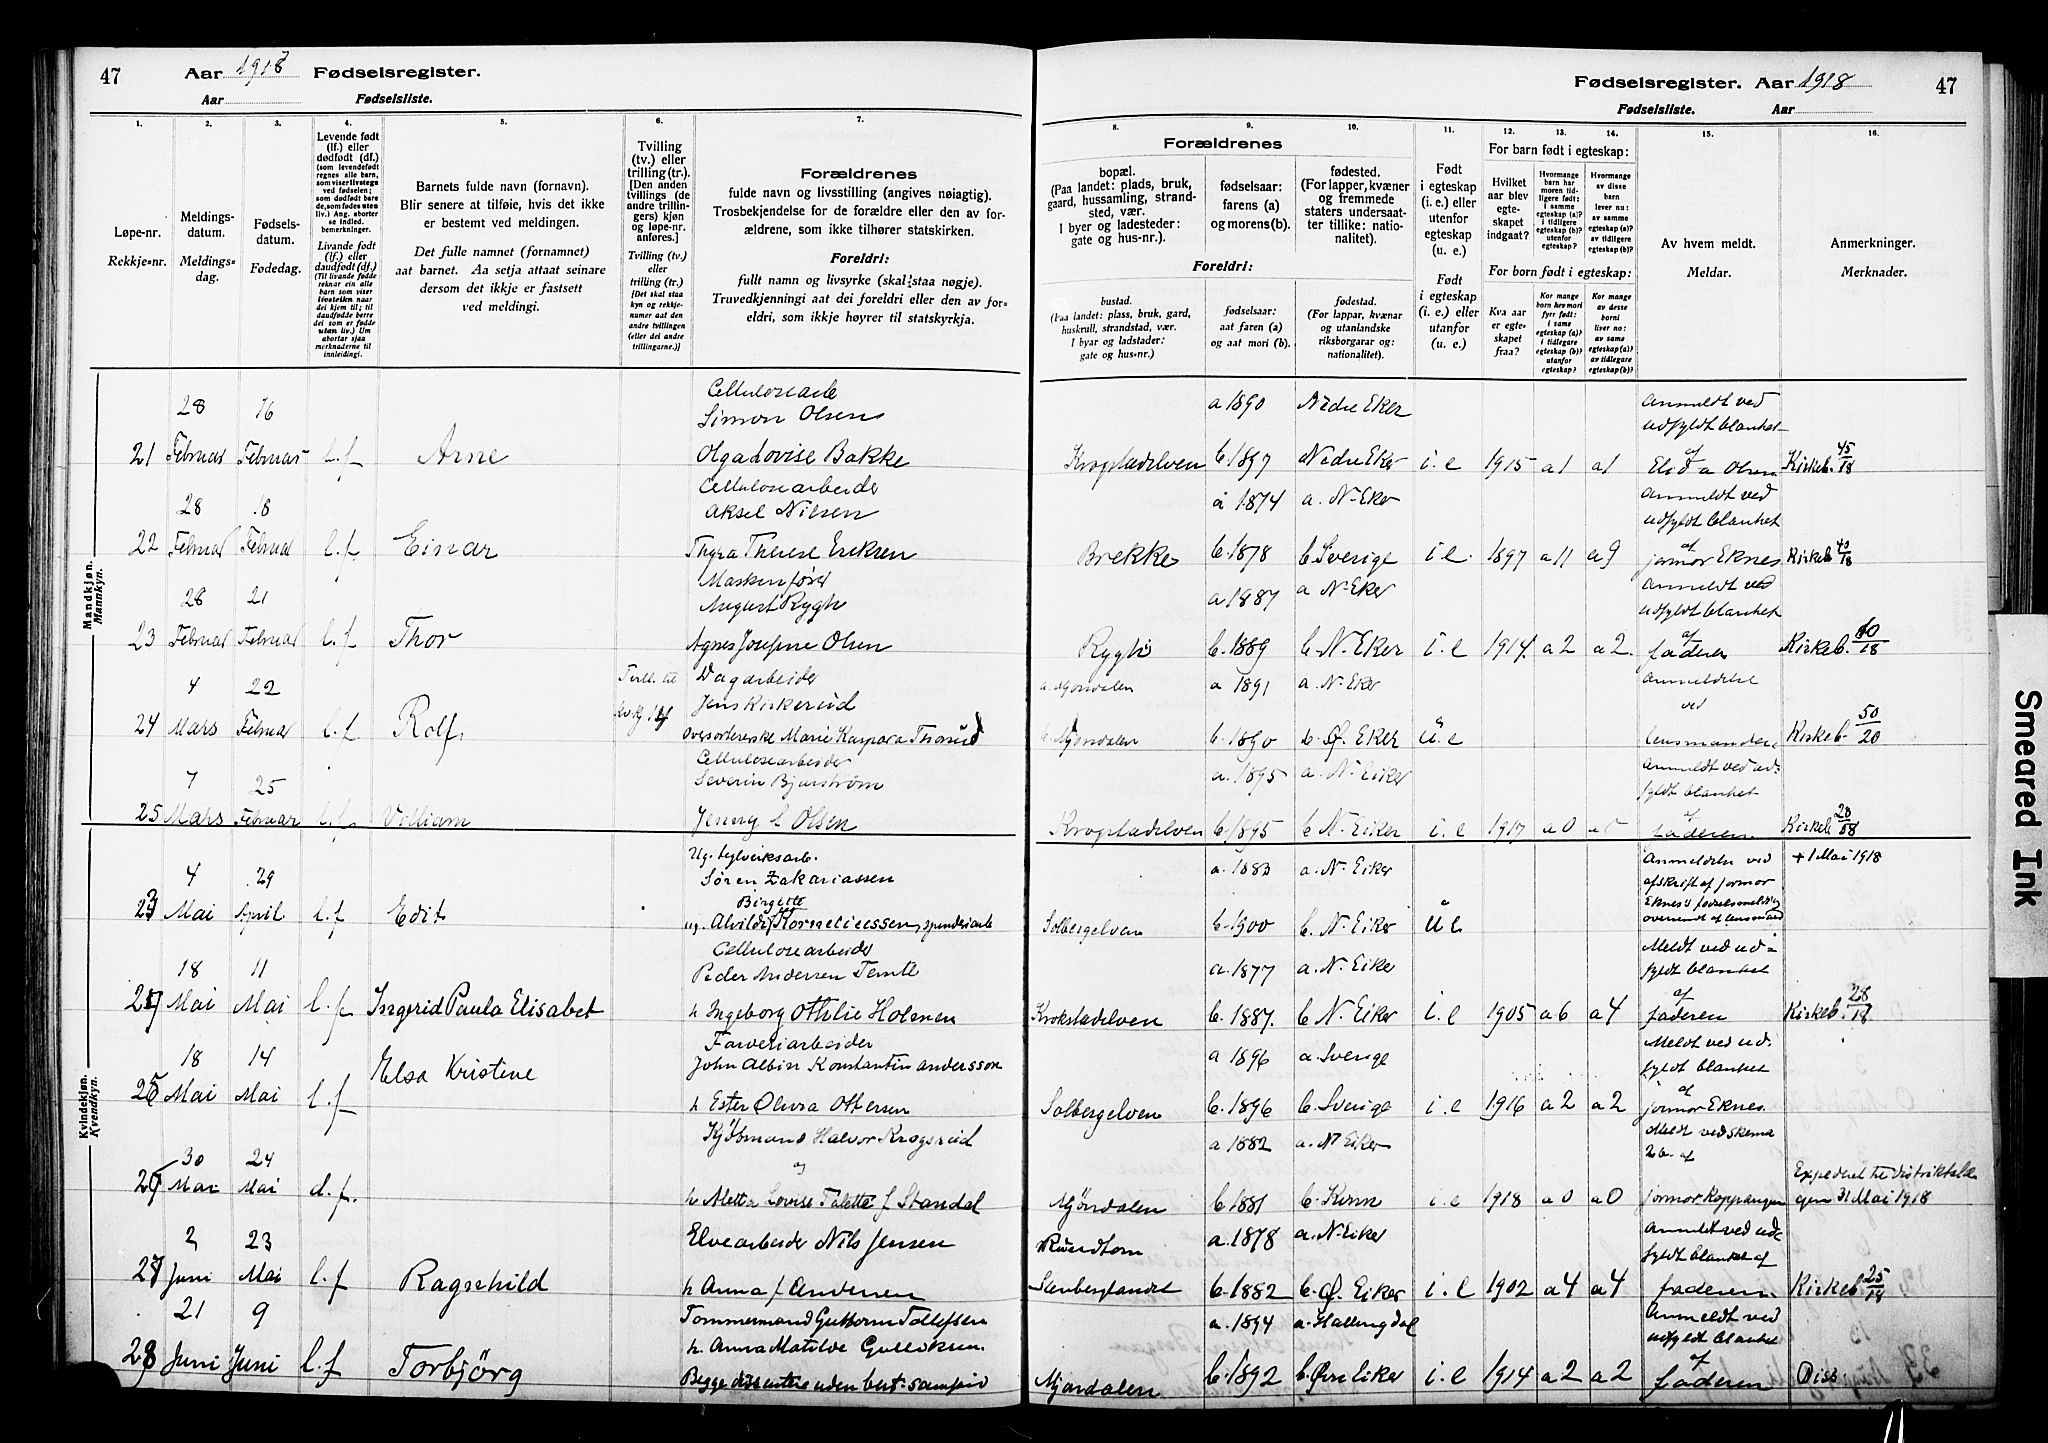 47
Aar 1918 Fødselsregister.
Aar Fødselsliste.
1.
2.
3.
4.
5.
6.
7.
Løpe-nr.
Rekkje-nr.
Meldings-
datum.
Meldings-
dag.
Fødsels-
datum.
Fødedag.
Levende født
(lf.) eller
dødfødt (df.)
(som levendefødt
regnes alle barn,
som viser livstegn
ved fødselen;
som dødfødt bare
de, som fødes uten
liv.) Ang. aborter
se indled.
bemerkninger.
Livande født
(lf.) eller
daudfødt (df.)
(Til livande fødde
reknar ein alle
barn som viser
livsteikn naar
dei kjem til; til
daudfødde berre
dei som er fødde
utan liv.) Um
abortar sjaa
merknaderne til
innleidingi.
Barnets fulde navn (fornavn).
Blir senere at tilføie, hvis det ikke
er bestemt ved meldingen.
Det fulle namnet (fornamnet)
aat barnet. Aa setja attaat seinare
dersom det ikkje er fastsett
ved meldingi.
Tvilling
(tv.) eller
trilling (tr.)
[Den anden
tvillings (de
andre trillin-
gers) kjøn
og løpe-nr.
anføres.]
Tvilling (tv.)
eller
trilling (tr.)
[Det skal staa
kyn og rekkje-
numer aat den
andre tvillingen
(eller dei andre
trillingarne.)]
Forældrenes
fulde navn og livsstilling (angives nøiagtig).
Trosbekjendelse for de forældre eller den av for-
ældrene, som ikke tilhører statskirken.
Foreldri:
fullt namn og livsyrke (skal staa nøgje).
Truvedkjenningi aat dei foreldri eller den av for-
eldri, som ikkje høyrer til statskyrkja.
Mandkjøn.
Mannkyn.
28 16 Cellulosearb
Simon Olsen
21 Februar Februar l.f Arne Olga Lovise Bakke
28 18 Cellulosearbeider
Aksel Nilsen
22 Februar Februar l.f Einar Thyra Therese Eriksen
28 21 Maskinfører
August Rygh
23 Februar Februar l.f Thor Agnes Josefine Olsen
4 22 Tvill. til Dagarbeider
Jens Kirkerud
24 Mars Februar l.f Rolf Marie Kaspara
7 25 Cellulosearbeider
Severin Bjurstrøm
25 Mars Februar l.f. Villiam Jenny Olsen
Kvindekjøn.
Kvendkyn.
4 29 Ug.
Søren Zakariassen
Birgitte
23 Mai April l.f Edit ug. Alvilde Korneliussen,
18 11 Cellulosearbeider
Peder Andersen Temte
24 Mai Mai l.f Ingerid Paula Elisabet h Ingeborg Othilie Holmen
18 14 Farveriarbeider
Elsa Kristine John Albin Konstantin Andersson
25 Mai Mai l.f h Ester Olivia Ottersen
Kjøbmand Halvor Krogsrud
30 24 og
26 Mai Mai d.f. h Aletta Lovise Talette f Standal
2 23 Elvearbeider Nils Jensen
27 Juni Mai l.f Ragnhild h Anna f Andersen
21 9 Tømmermand Guttorm Tollefsen
28 Juni Juni l.f Torbjörg h. Anna Matilde Gulliksen
Begge dissentere uden best. samfund
Fødselsregister. Aar 1918 47
Fødselsliste. Aar
8.
9.
10.
11.
12.
13.
14.
15.
16.
Forældrenes
bopæl.
(Paa landet: plads, bruk,
gaard, hussamling, strand-
sted, vær.
I byer og ladesteder:
gate og hus-nr.).
fødselsaar:
farens (a)
og morens (b).
fødested.
(For lapper, kvæner
og fremmede
staters undersaat-
ter tillike: natio-
nalitet).
Foreldri:
bustad.
(Paa landet: plass, bruk, gard,
huskrull, strandstad, vær.
I byar og ladstader:
gate og hus-nr.)
fødselsaar:
aat faren (a)
og aat mori (b).
fødestad.
(For lappar, kvænar
og utanlandske
riksborgarar og:
nationalitet).
Født
i egteskap
(i. e.) eller
utenfor
egteskap
(u. e.)
Født
i egteskap
(i. e.) eller
utanfor
(u. e.)
For barn født i egteskap:
Hvilket
aar blev
egte-
skapet
indgaat?
Hvormange
barn har
moren tid-
ligere født:
i samme
egteskap (a)?
i tidligere
egteskap (b)?
utenfor
egteskap?
Hvormange
av disse
barn
lever nu:
av samme
egteskap (a)?
av tidligere
egteskap (b)?
For born født i egteskap:
Kva aar
er egte-
skapet
fraa?
Kor mange
born hev mori
fyrr født:
i same
egteskap (a)?
i tidlegare
egteskap (b)?
utanfor
egteskap?
Kor mange
av desse
borni
liver no:
av same
egteskap (a)?
av tidlegare
egteskap (b)?
Av hvem meldt.
Meldar.
Anmerkninger.
Merknader.
a 1890 Nedre Eker Anmeldt ved
udfyldt blanket
af
Krogstadelven b. 1897 Nedre Eker i. e 1915 a 1 a 1 Olsen Kirkeb. 45/18
a 1874 a. N. Eker Anmeldt ved
udfyldt blanket
af
Brekke b. 1878 b. Sverige i. e. 1897 a 11 a 9 jormor Eknes Kirkeb 40/18
a 1887 a N. Eker Anmeldt ved
udfyldt blanket
af
Rygh b. 1889 b. N. Eker i. e 1914. a 2 a 2. faderen Kirkeb. /18
a. Mjøndalen a 1891 a. N. Eker Anmeldelse
ved
b. Mjøndalen b. 1890 b. Ø. Eker u. e lensmanden. Kirkeb. 50/20
a. 1895 a. N. Eiker Anmeldt ved ud-
fyldt blanket
af
Krogstadelven b. 1895 b. N. Eiker i. e 1917 a 0 faderen Kirkeb 28/18
a. 1883 a. N. Eiker Anmeldelse ved + 1 Mai 1918
afskrift af jormor
Eknes's fødselsmelding
oversendt af lensmand
Solbergelven b. 1900 b. N. Eiker u e
a. 1877 a. N. Eiker Meldt ved ud-
fyldt blanket
af
Krokstadelven b. 1887. b. N. Eiker i. e 1905 a 6 a 4 faderen Kirkeb. 28/18
a 1896 a. Sverige Meldt ved ud-
fyldt blanket
af
Solbergelven b. 1896 b. Sverige i. e 1916 a 2 a 2 jormor Eknes.
a 1882 a. N Eiker Meldt ved skema
2b. af
Mjøndalen b. 1881 i. e 1918 a 0 a 0 jormor Koppangen Expederet til distriktslæ
gen 31 Mai 1918
a. 1878 a. N. Eiker Anmeldt ved ud-
fyldt blanket af
b. 1882 b. Ø. Eiker i. e 1902 a 4 a 4 faderen Kirkeb 25/18
a. 1894 a. Hallingdal Anmeldt ved
udfyldt blanket
af
Mjøndalen b. 1892 b. Øvre Eiker i. e 1914 a 2 a 2 faderen Diss.
Smeared Ink